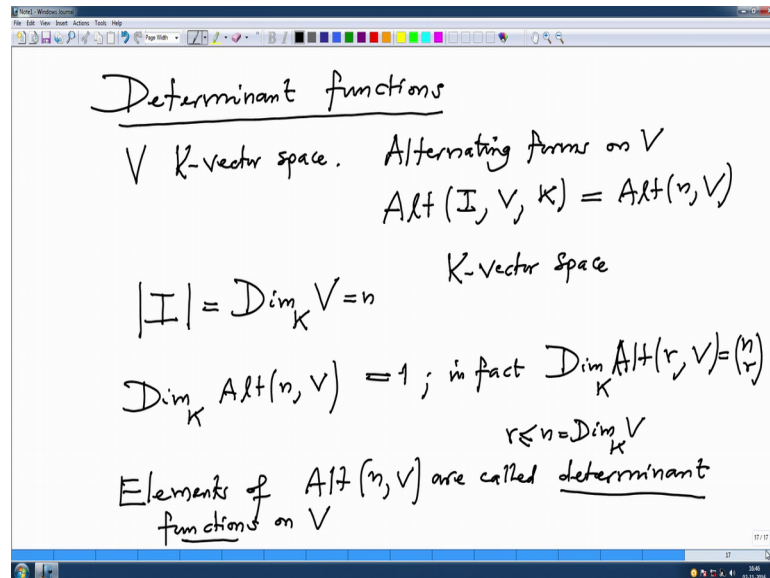 Note1 - Windows Journal
File Edit View Insert Actions Tools Help
Page Width
Determinant functions
V K-vector space. Alternating forms on V
Alt(I, V, K) = Alt(n, V)
K-vector space
|I| = Dim_K V = n
Dim_K Alt(n, V) = 1; in fact Dim_K Alt(r, V) = (n r)
r ≤ n = Dim_K V
Elements of Alt(n, V) are called determinant
functions on V
17/17
17
16:46